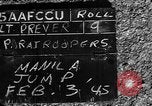 5AAFCCU ROLL
LT PREVER 9
PARATROOPERS
MANILA
JUMP,
FEB. 3, 45